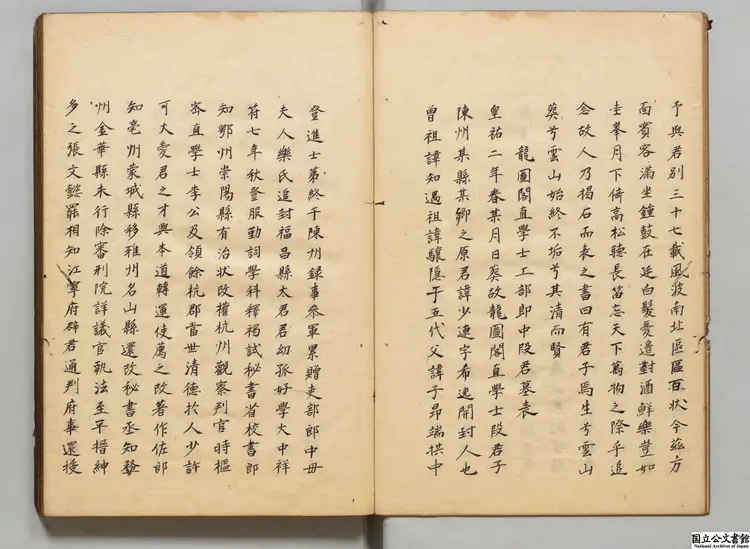 予與君別三十七載風波南北區區百状今茲方
面賓客滿坐鐘鼓在廷白髮憂邊對酒鮮樂豈如
圭峯月下倚高松聽長笛忘天下萬物之際乎追
念故人乃揭石而表之書曰有君子焉生兮雲山
葬兮雲山始終不垢兮其清而賢
龍圖閣直學士工部郎中段君墓表
皇祐二年春某月日葬故龍圖閣直學士段君于
陳州某縣某鄉之原君諱少連字希逸開封人也
曾祖諱知遇祖諱驤隱于五代父諱子昂端拱中
登進士第終于陳州録事參軍累贈吏部郎中母
夫人樂氏追封福昌縣太君君幼孤好學大中祥
符七年秋登服勤詞學科釋褐試秘書省校書郎
知鄂州崇陽縣有治状改權杭州觀察判官時樞
密直學士李公及領餘杭郡當世清德於人少許
可大愛君之才與本道轉運使薦之改著作佐郎
知亳州蒙城縣移雅州名山縣還改秘書丞知婺
州金華縣未行除審刑院詳議官執法至平搢紳
多之張文懿罷相知江寧府辟君通判府事還授
国立公文書館
National Archives of Japan